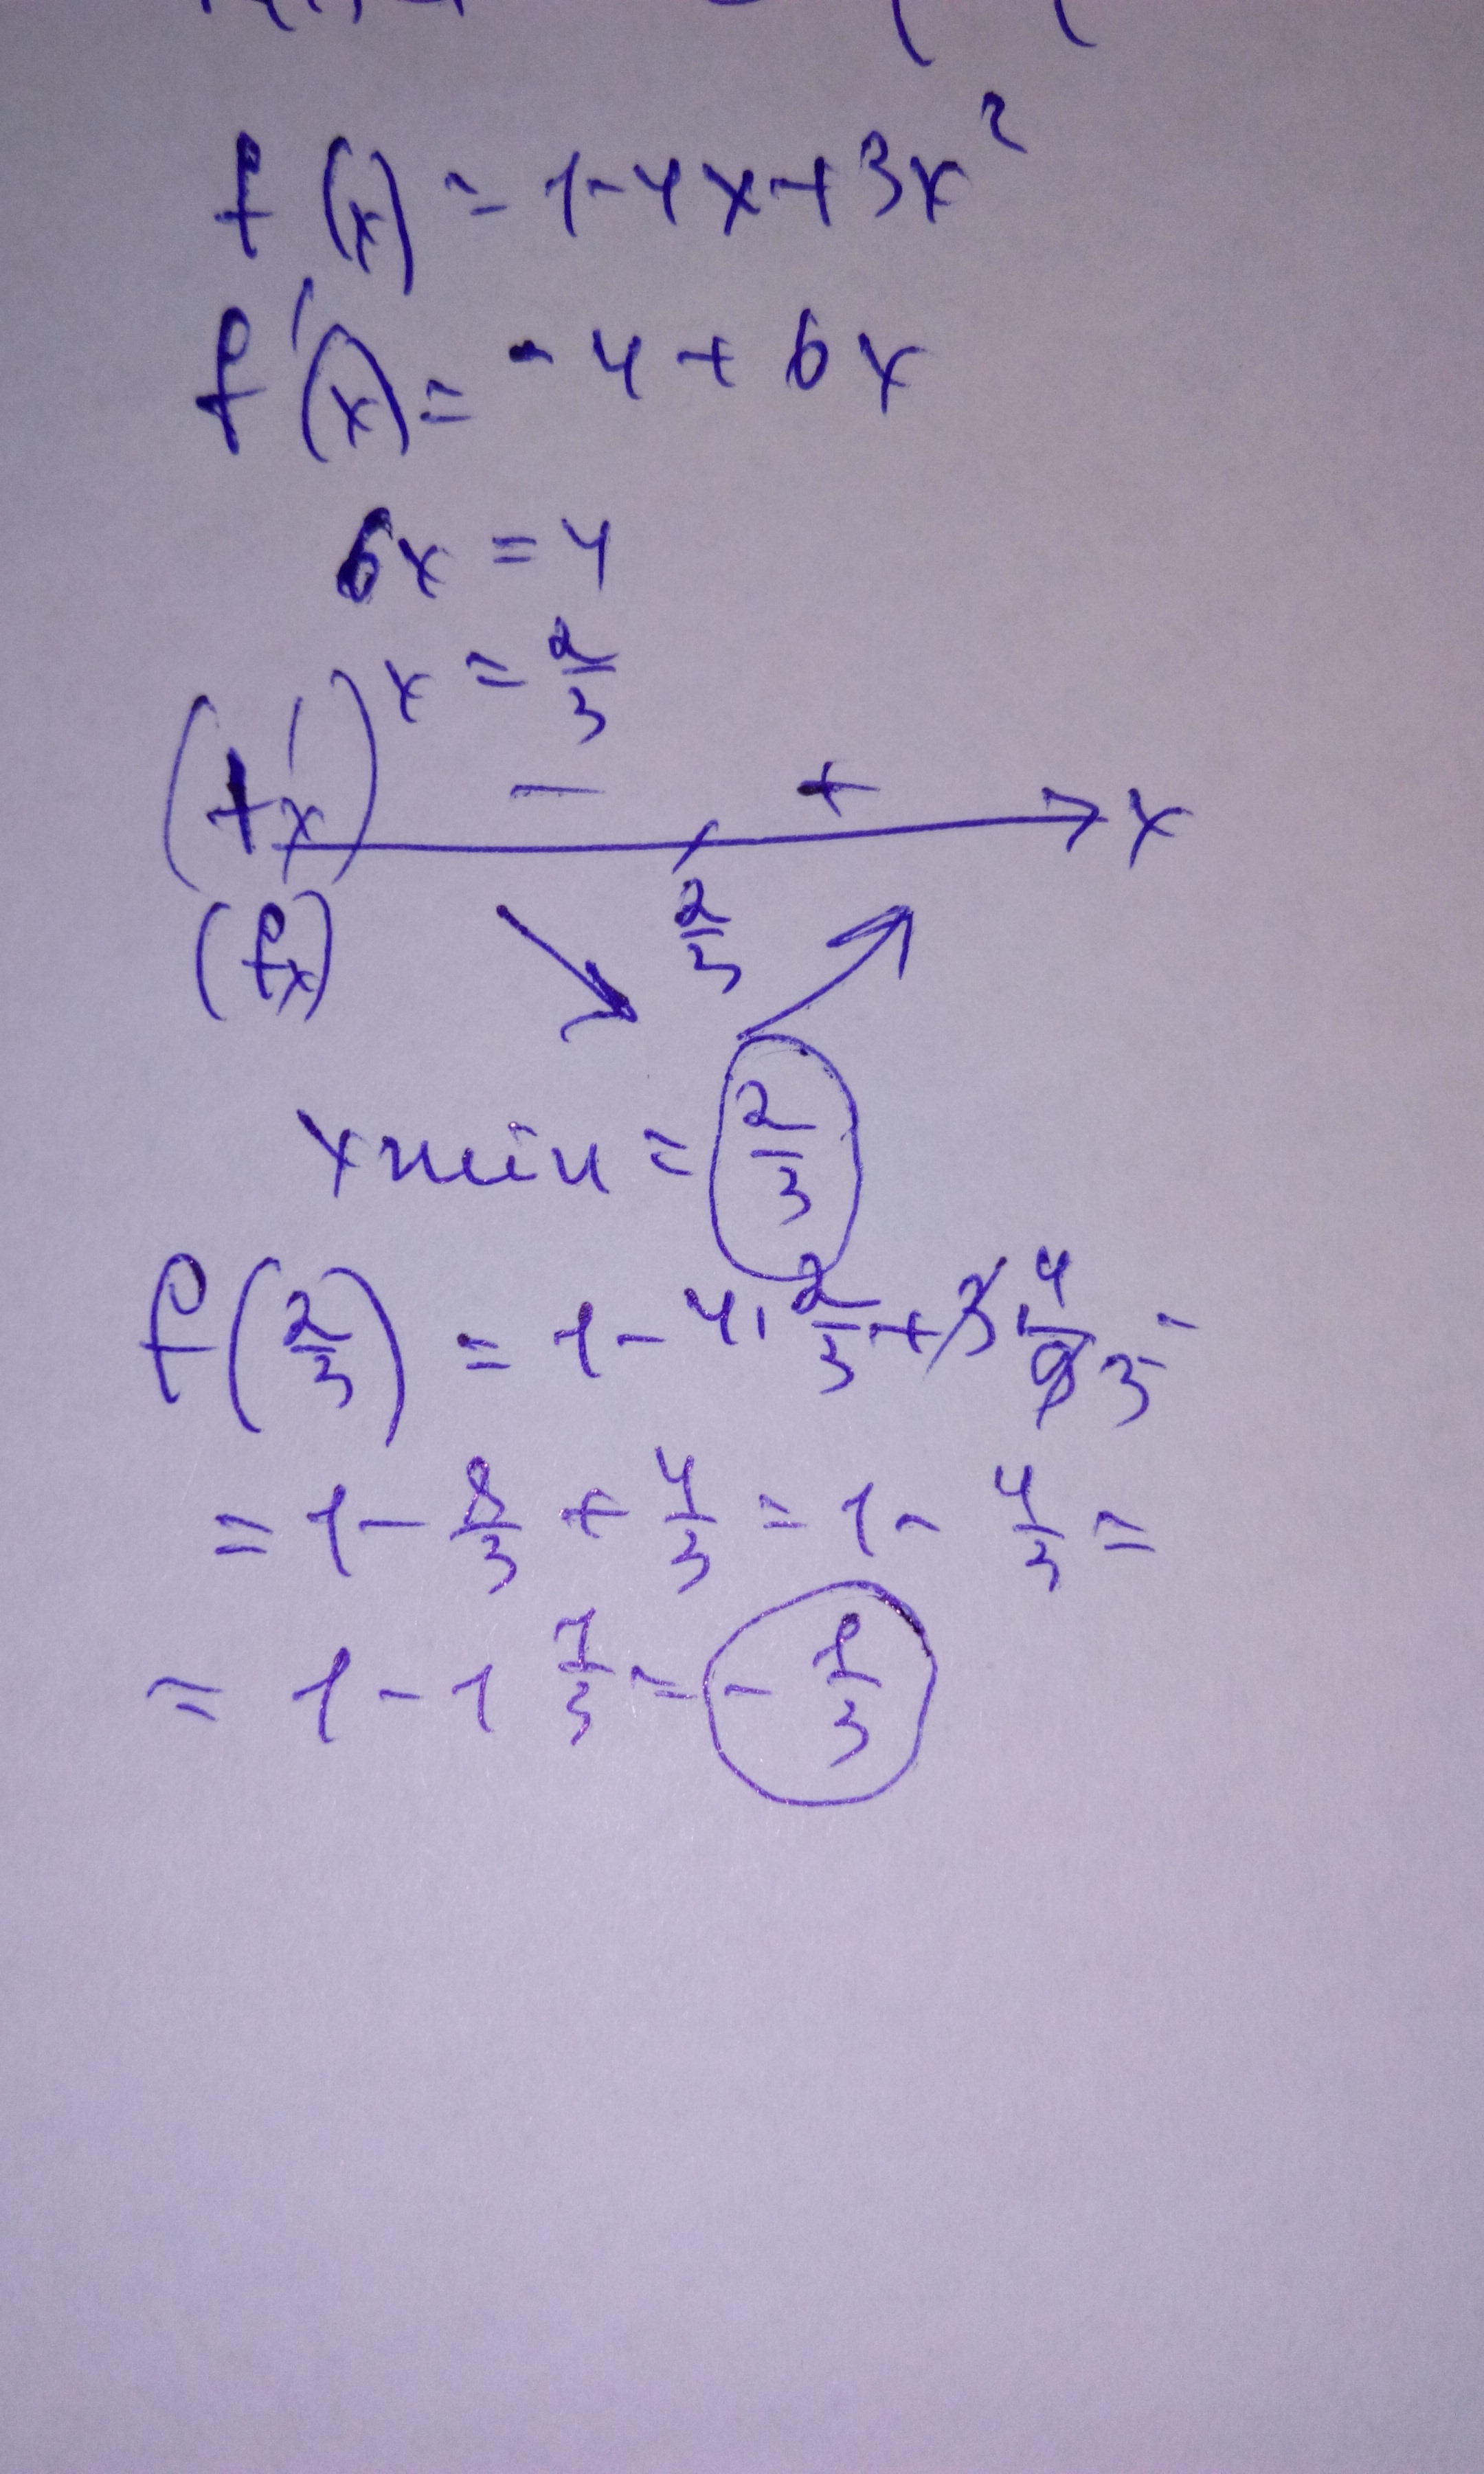 f(x) = 1-4x+3x²
f'(x) = -4+6x
6x = 4
x = 2/3
(f'x) - + x
(fx) 2/3
xmin = 2/3
f(2/3) = 1-4·2/3+3·4/9 3 =
= 1-8/3+4/3 = 1-4/3 =
= 1-1 1/3 = -1/3